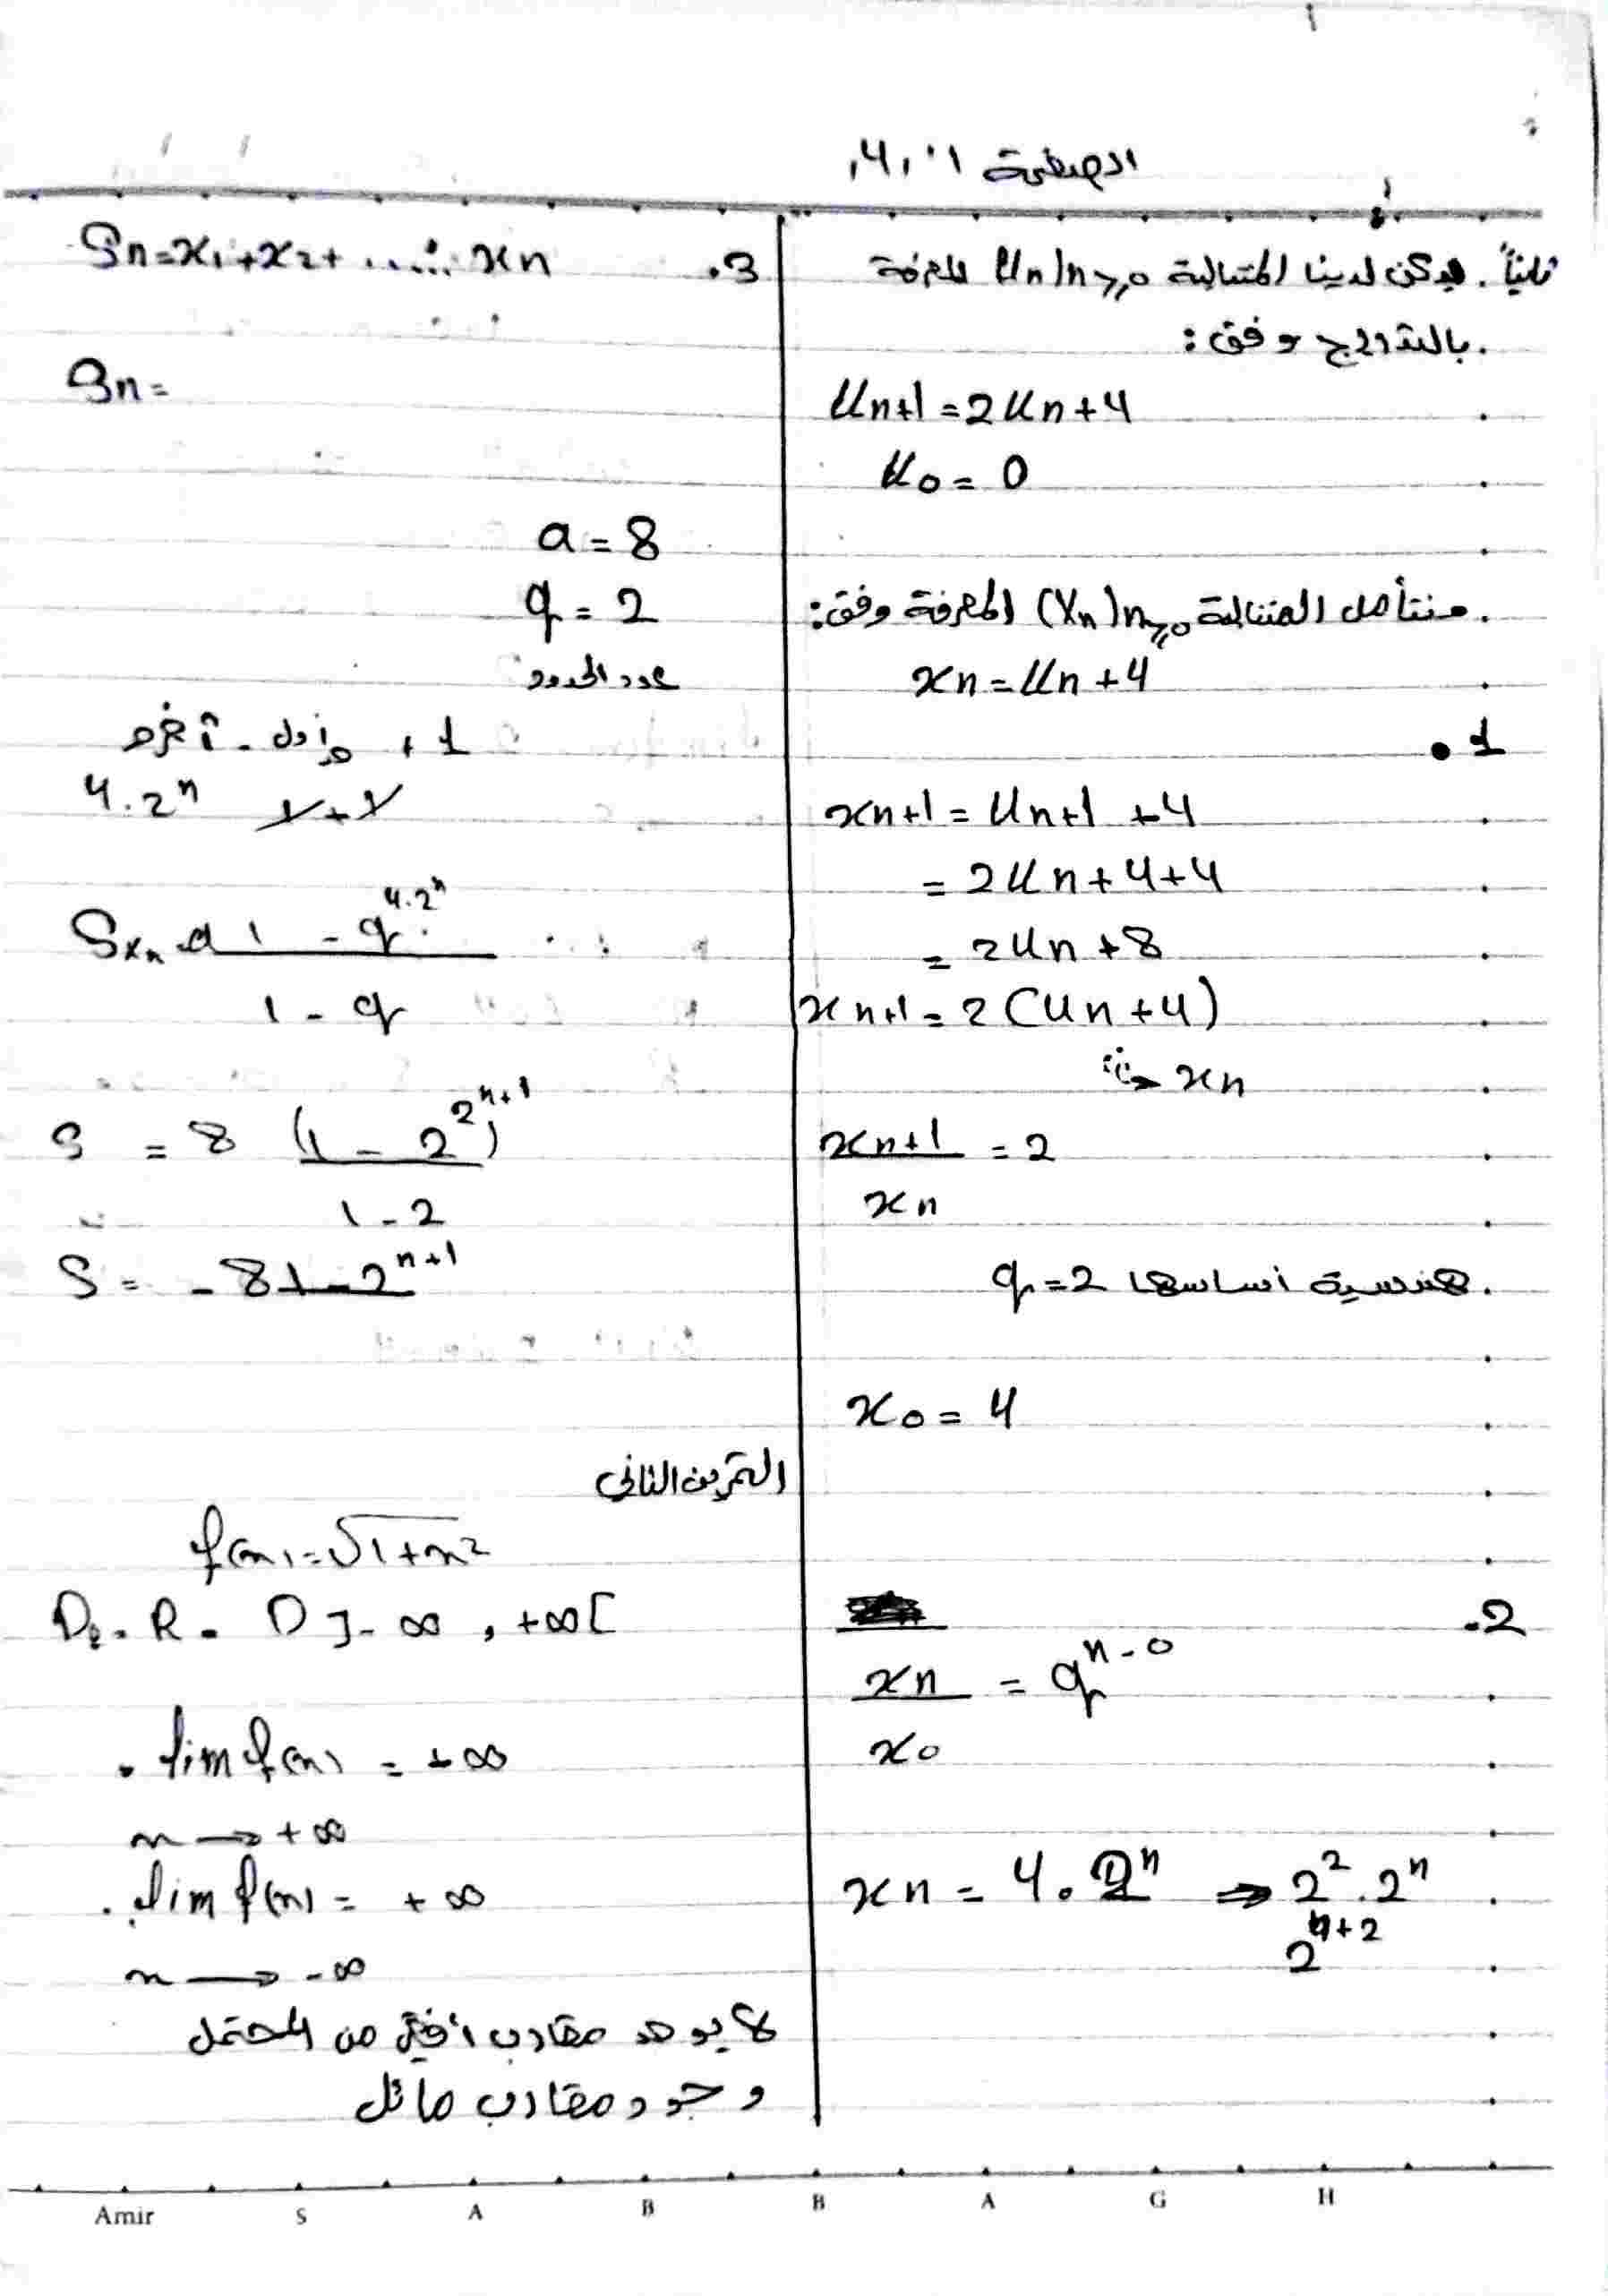 الصفحة
ثانياً. ليكن لدينا المتتالية Un)n≥0 المعرفة
بالتدريج وفق:
Un+1 = 2Un + 4
U0 = 0
نتأمل المتتالية (Xn)n≥0 المعرفة وفق:
xn = Un + 4
1.
xn+1 = Un+1 + 4
= 2Un + 4 + 4
= 2Un + 8
xn+1 = 2(Un + 4)
xn
xn+1 / xn = 2
هندسية أساسها q = 2
x0 = 4
2.
xn / x0 = q^n-0
xn = 4.2^n ⇒ 2^2.2^n
2^n+2
3. Sn = x1 + x2 + ...... xn
Sn =
a = 8
q = 2
عدد الحدود
آخره - أوله + 1
4.2^n
Sxn = a 1 - q^4.2^n / 1 - q
S = 8 (1 - 2^2^n+1) / 1 - 2
S = - 8 1 - 2^n+1
التمرين الثاني
f(x) = √1+x²
Df = R = D ]-∞ , +∞[
. lim f(x) = +∞
x → +∞
. lim f(x) = +∞
x → -∞
لا يوجد مقارب أفقي من المحتمل
وجود مقارب مائل
Amir S A B B A G H